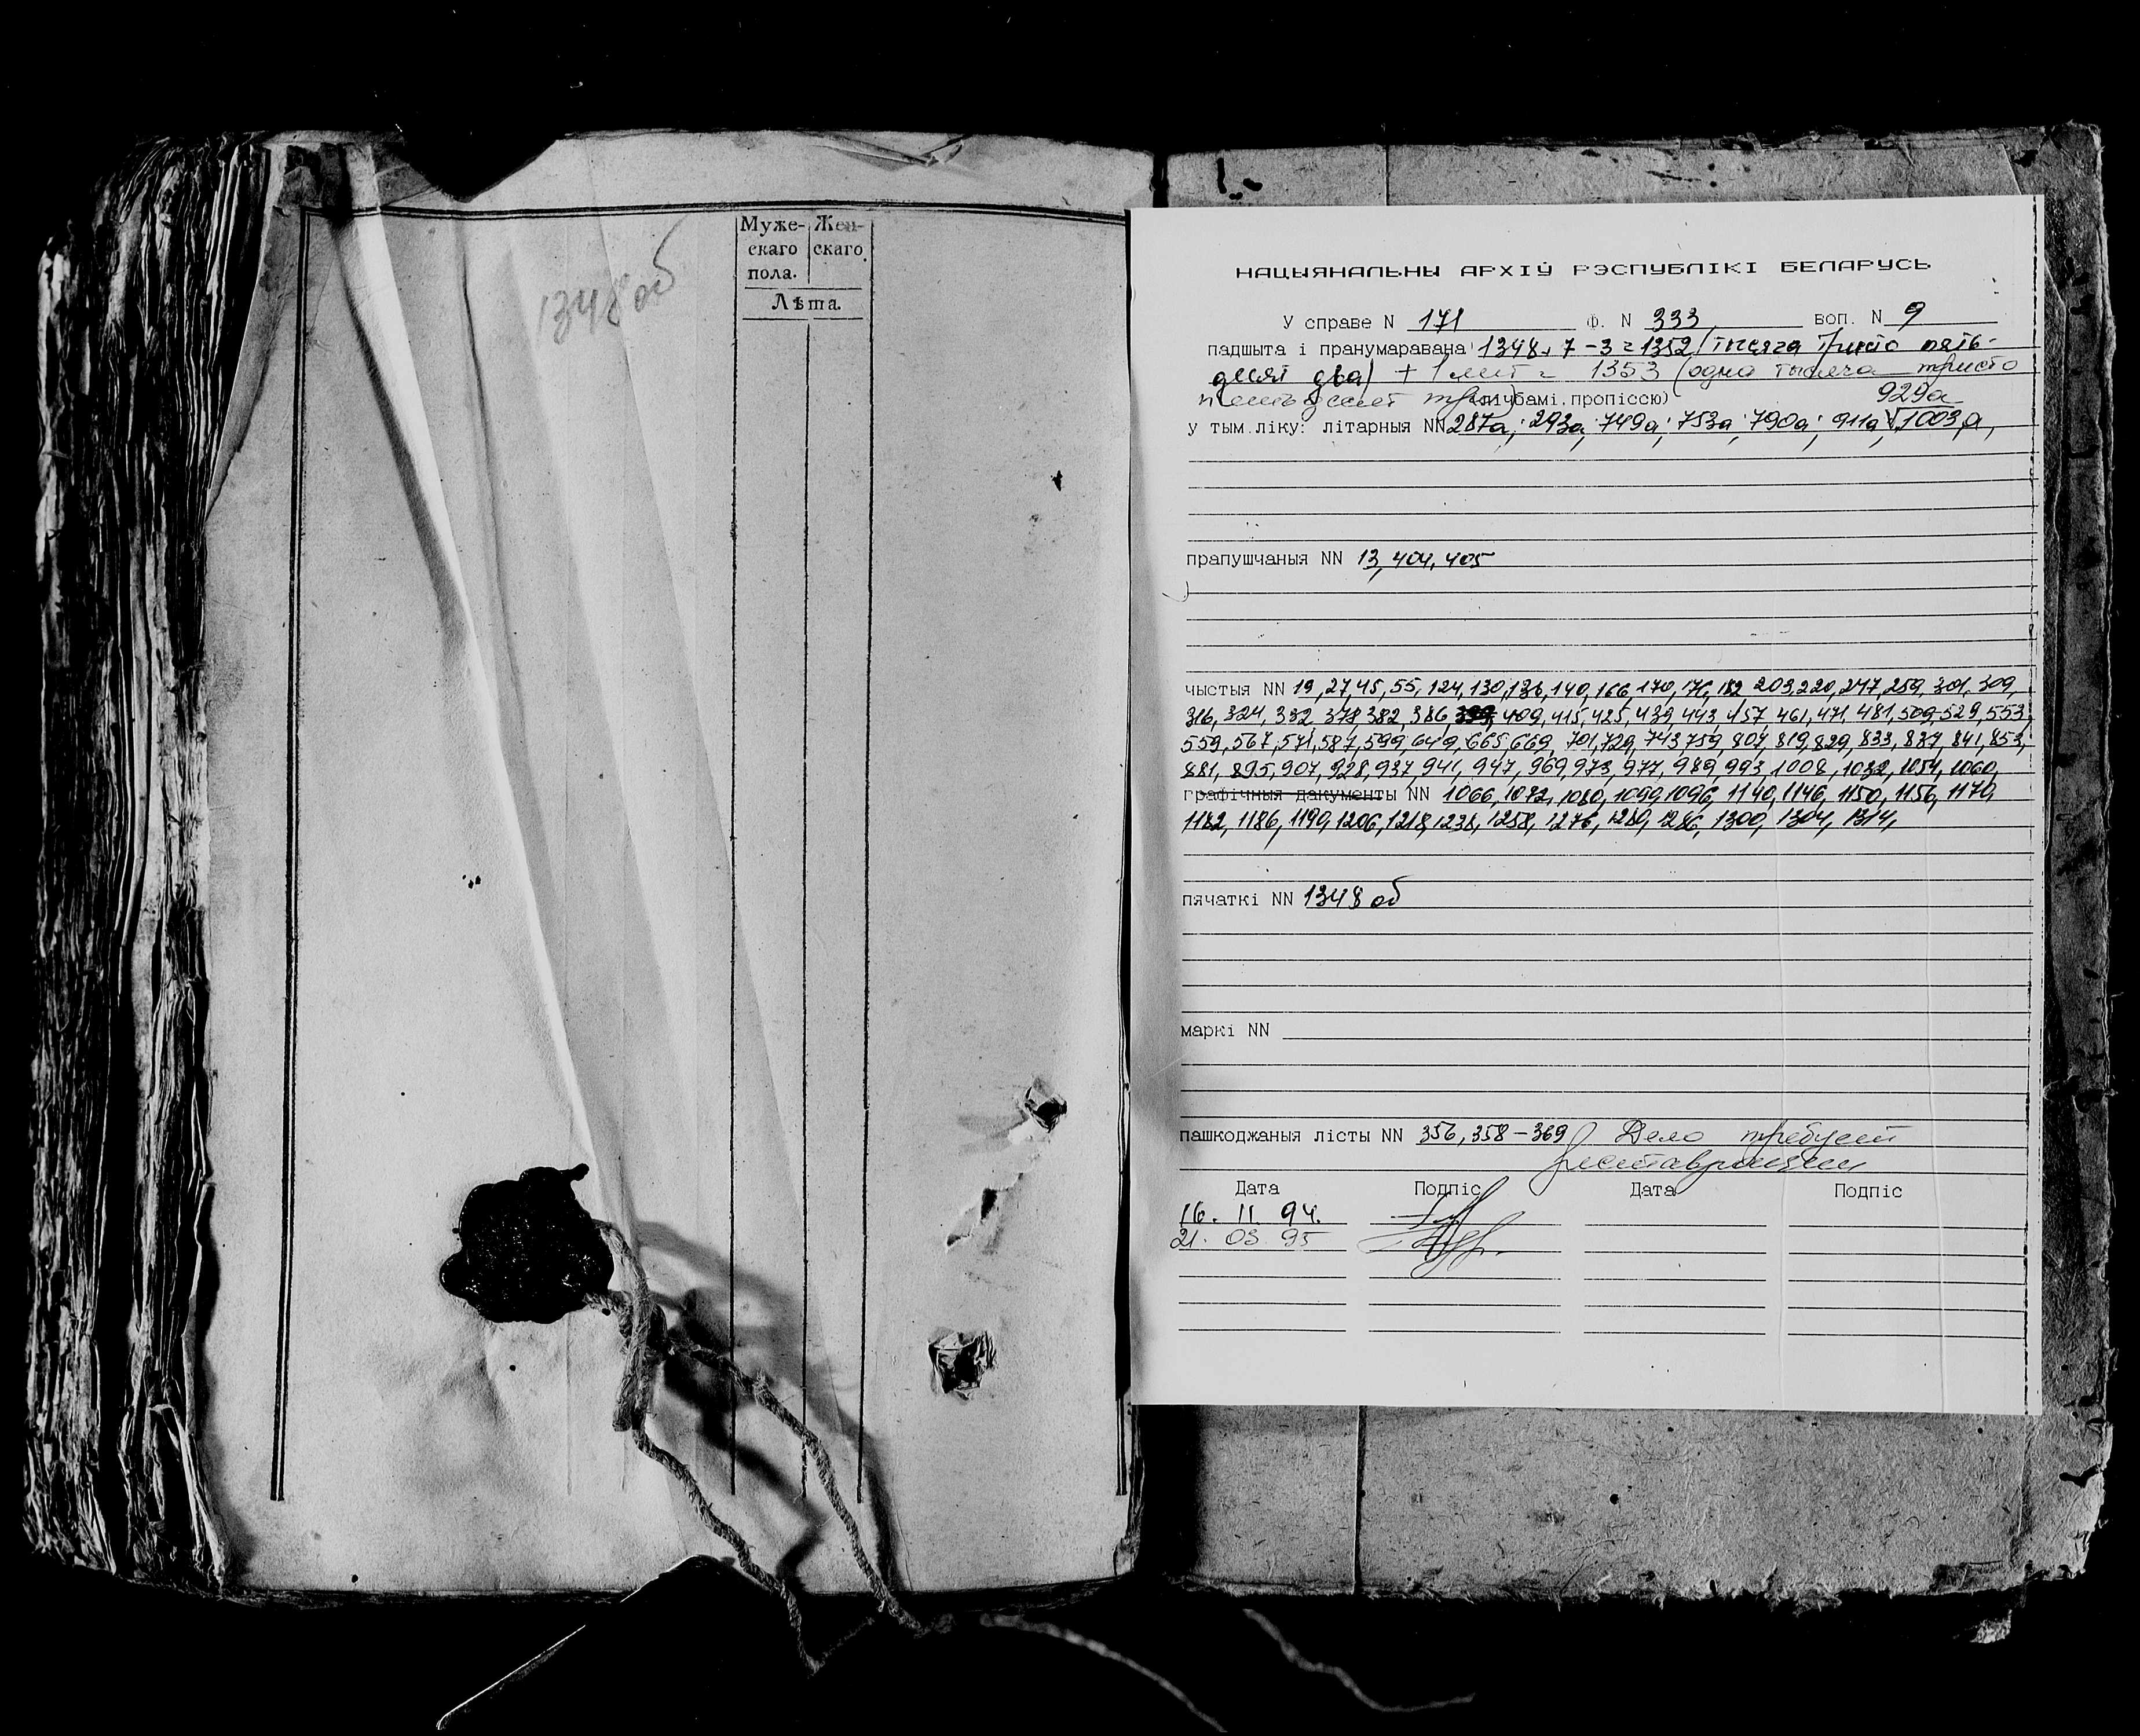 1348 об
Муже- Жен-
скаго скаго
пола.
Лѣта.
НАЦЫЯНАЛЬНЫ АРХІЎ РЭСПУБЛІКІ БЕЛАРУСЬ
У справе N 171 Ф. N 333 воп. N 9
падшыта і пранумаравана 1348+7-3=1352 (тысяча триста пять-
десят два) + 1 лист = 1353 (одна тысяча триста
пятьдесят три) (лічбамі.пропіссю) 929а
у тым.ліку: літарныя NN 287а; 293а; 749а; 753а; 790а; 911а, 1003а,
прапушчаныя NN 13, 404, 405
чыстыя NN 19, 27, 45, 55, 124, 130, 136, 140, 166, 170, 176, 182 203, 220, 247, 259, 301, 309,
316, 324, 332, 378, 382, 386, 409, 415, 425, 439, 443, 457, 461, 471, 481, 509, 529, 553,
559, 567, 571, 587, 599, 649, 665, 669, 701, 729, 743, 759, 807, 819, 829, 833, 837, 841, 853,
881, 895, 907, 928, 937, 941, 947, 969, 973, 977, 989, 993, 1008, 1032, 1054, 1060,
графічныя дакументы NN 1066, 1072, 1080, 1090, 1096, 1140, 1146, 1150, 1156, 1170,
1182, 1186, 1190, 1206, 1218, 1238, 1258, 1276, 1280, 1286, 1300, 1304, 1314,
пячаткі NN 1348 об
маркі NN
пашкоджаныя лісты NN 356, 358-369 Дело требует
реставрации
Дата Подпіс Дата Подпіс
16. 11. 94.
21. 03. 95